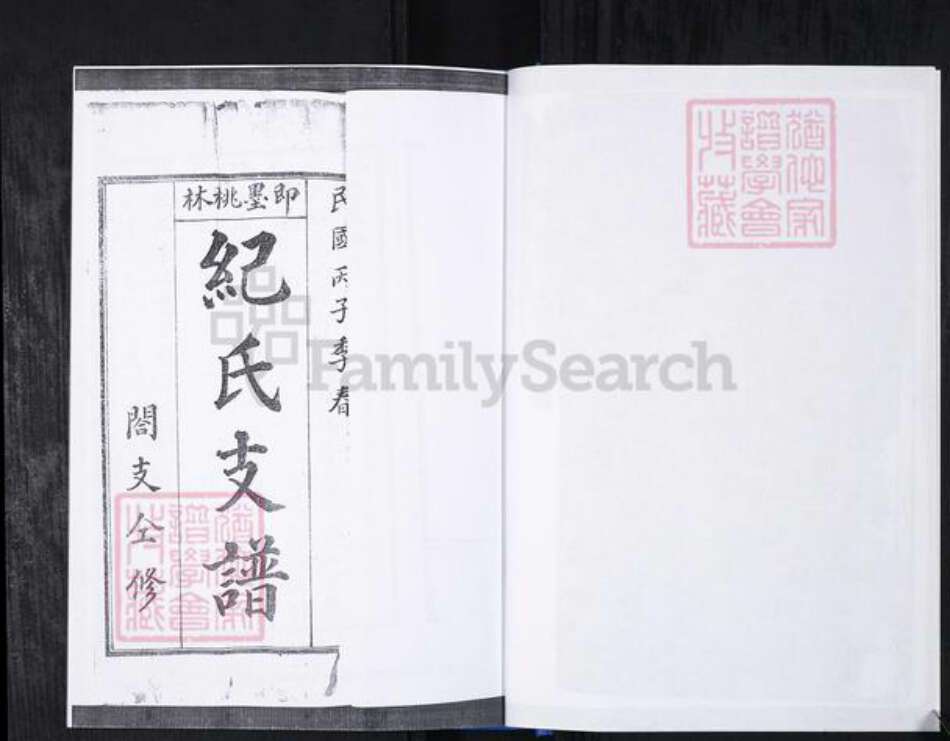 民國丙子季春
即墨桃林
紀氏支譜
閤支仝修
FamilySearch
猶他家
譜學會
收藏